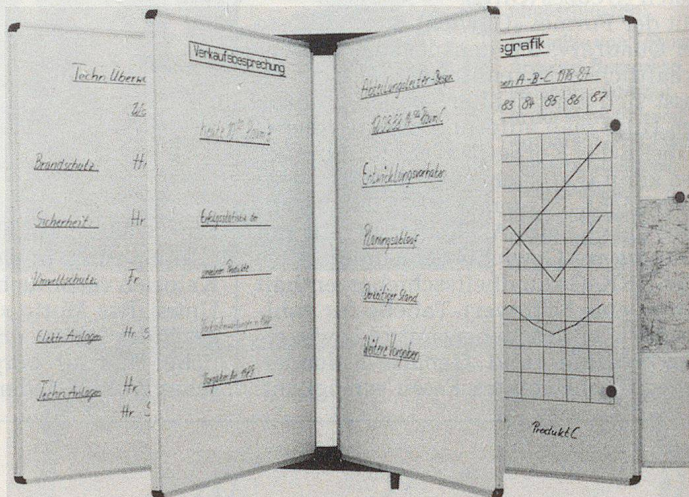 Techn. Überw
Brandschutz Hr
Sicherheit Hr
Umweltschutz Fr
Elektr. Anlagen Hr. S
Techn. Anlagen Hr.
Hr. S
Verkaufsbesprechung
heute
der
unserer Produkte
Vorgaben für
Abteilungsleiter-Bespr.
Raum C
Entwicklungsvorhaben
Planungsablauf
Derzeitiger Stand
Weitere Vorgaben
sgrafik
en A-B-C 1983-87
83 84 85 86 87
Produkt C